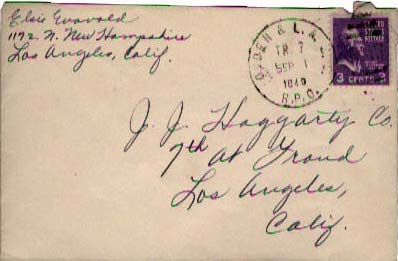 Elsie
1172 N. New Hampshire
Los Angeles, Calif.
OGDEN & L. A.
TR. 7
SEP 1
1940
R.P.O.
UNITED
STATES
POSTAGE
3 CENTS 3
J. J. Haggarty Co.
7th at Grand
Los Angeles,
Calif.